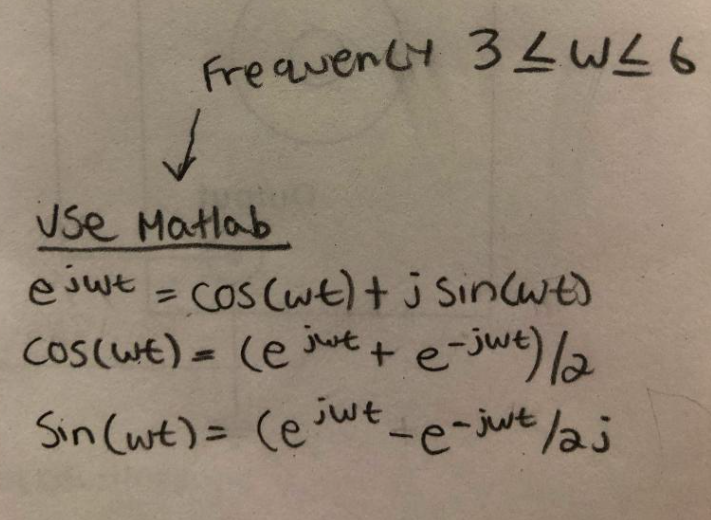 Frequency 3 ≤ w ≤ 6
Use Matlab
e^jwt = cos(wt) + j sin(wt)
cos(wt) = (e^jwt + e^-jwt)/2
Sin(wt) = (e^jwt - e^-jwt/2j